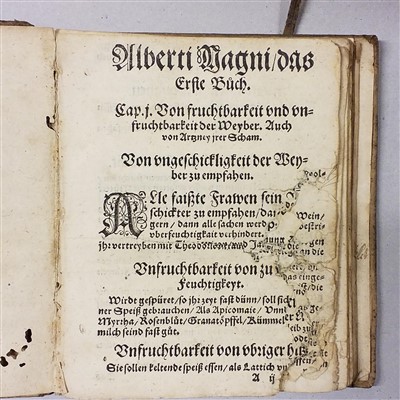 Alberti Magni/das
Erste Buch.
Cap.j. Von fruchtbarkeit vnd vn-
fruchtbarkeit der Weyber. Auch
von Artzney jrer Scham.
Von vngeschickligkeit der Wey-
ber zu empfahen.
ALle faißte Frawen sein
schickter zu empfahen/
gern/dann alle sachen werd
vberfeuchtigkeit verhindert.
jhr vertreyben mit
Vnfruchtbarkeit von zu
Feuchtigkeyt.
Wirdt gespüret/so jhr zeyt fast dünn/soll sich
ner Speiß gebrauchen/Als Apicomaie/
Myrrha/Rosenblüt/Granatöpffel/Kümmel
milch seind fast gůt.
Vnfruchtbarkeit von vbriger hitz
Sie sollen keltende speiß essen/als Lattich
A ij